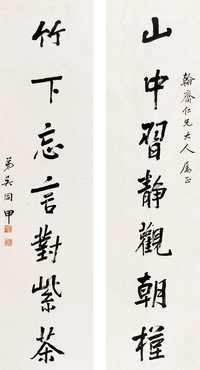 翰齋仁兄大人属正
山中習靜觀朝槿
竹下忘言對紫茶
弟吳同甲